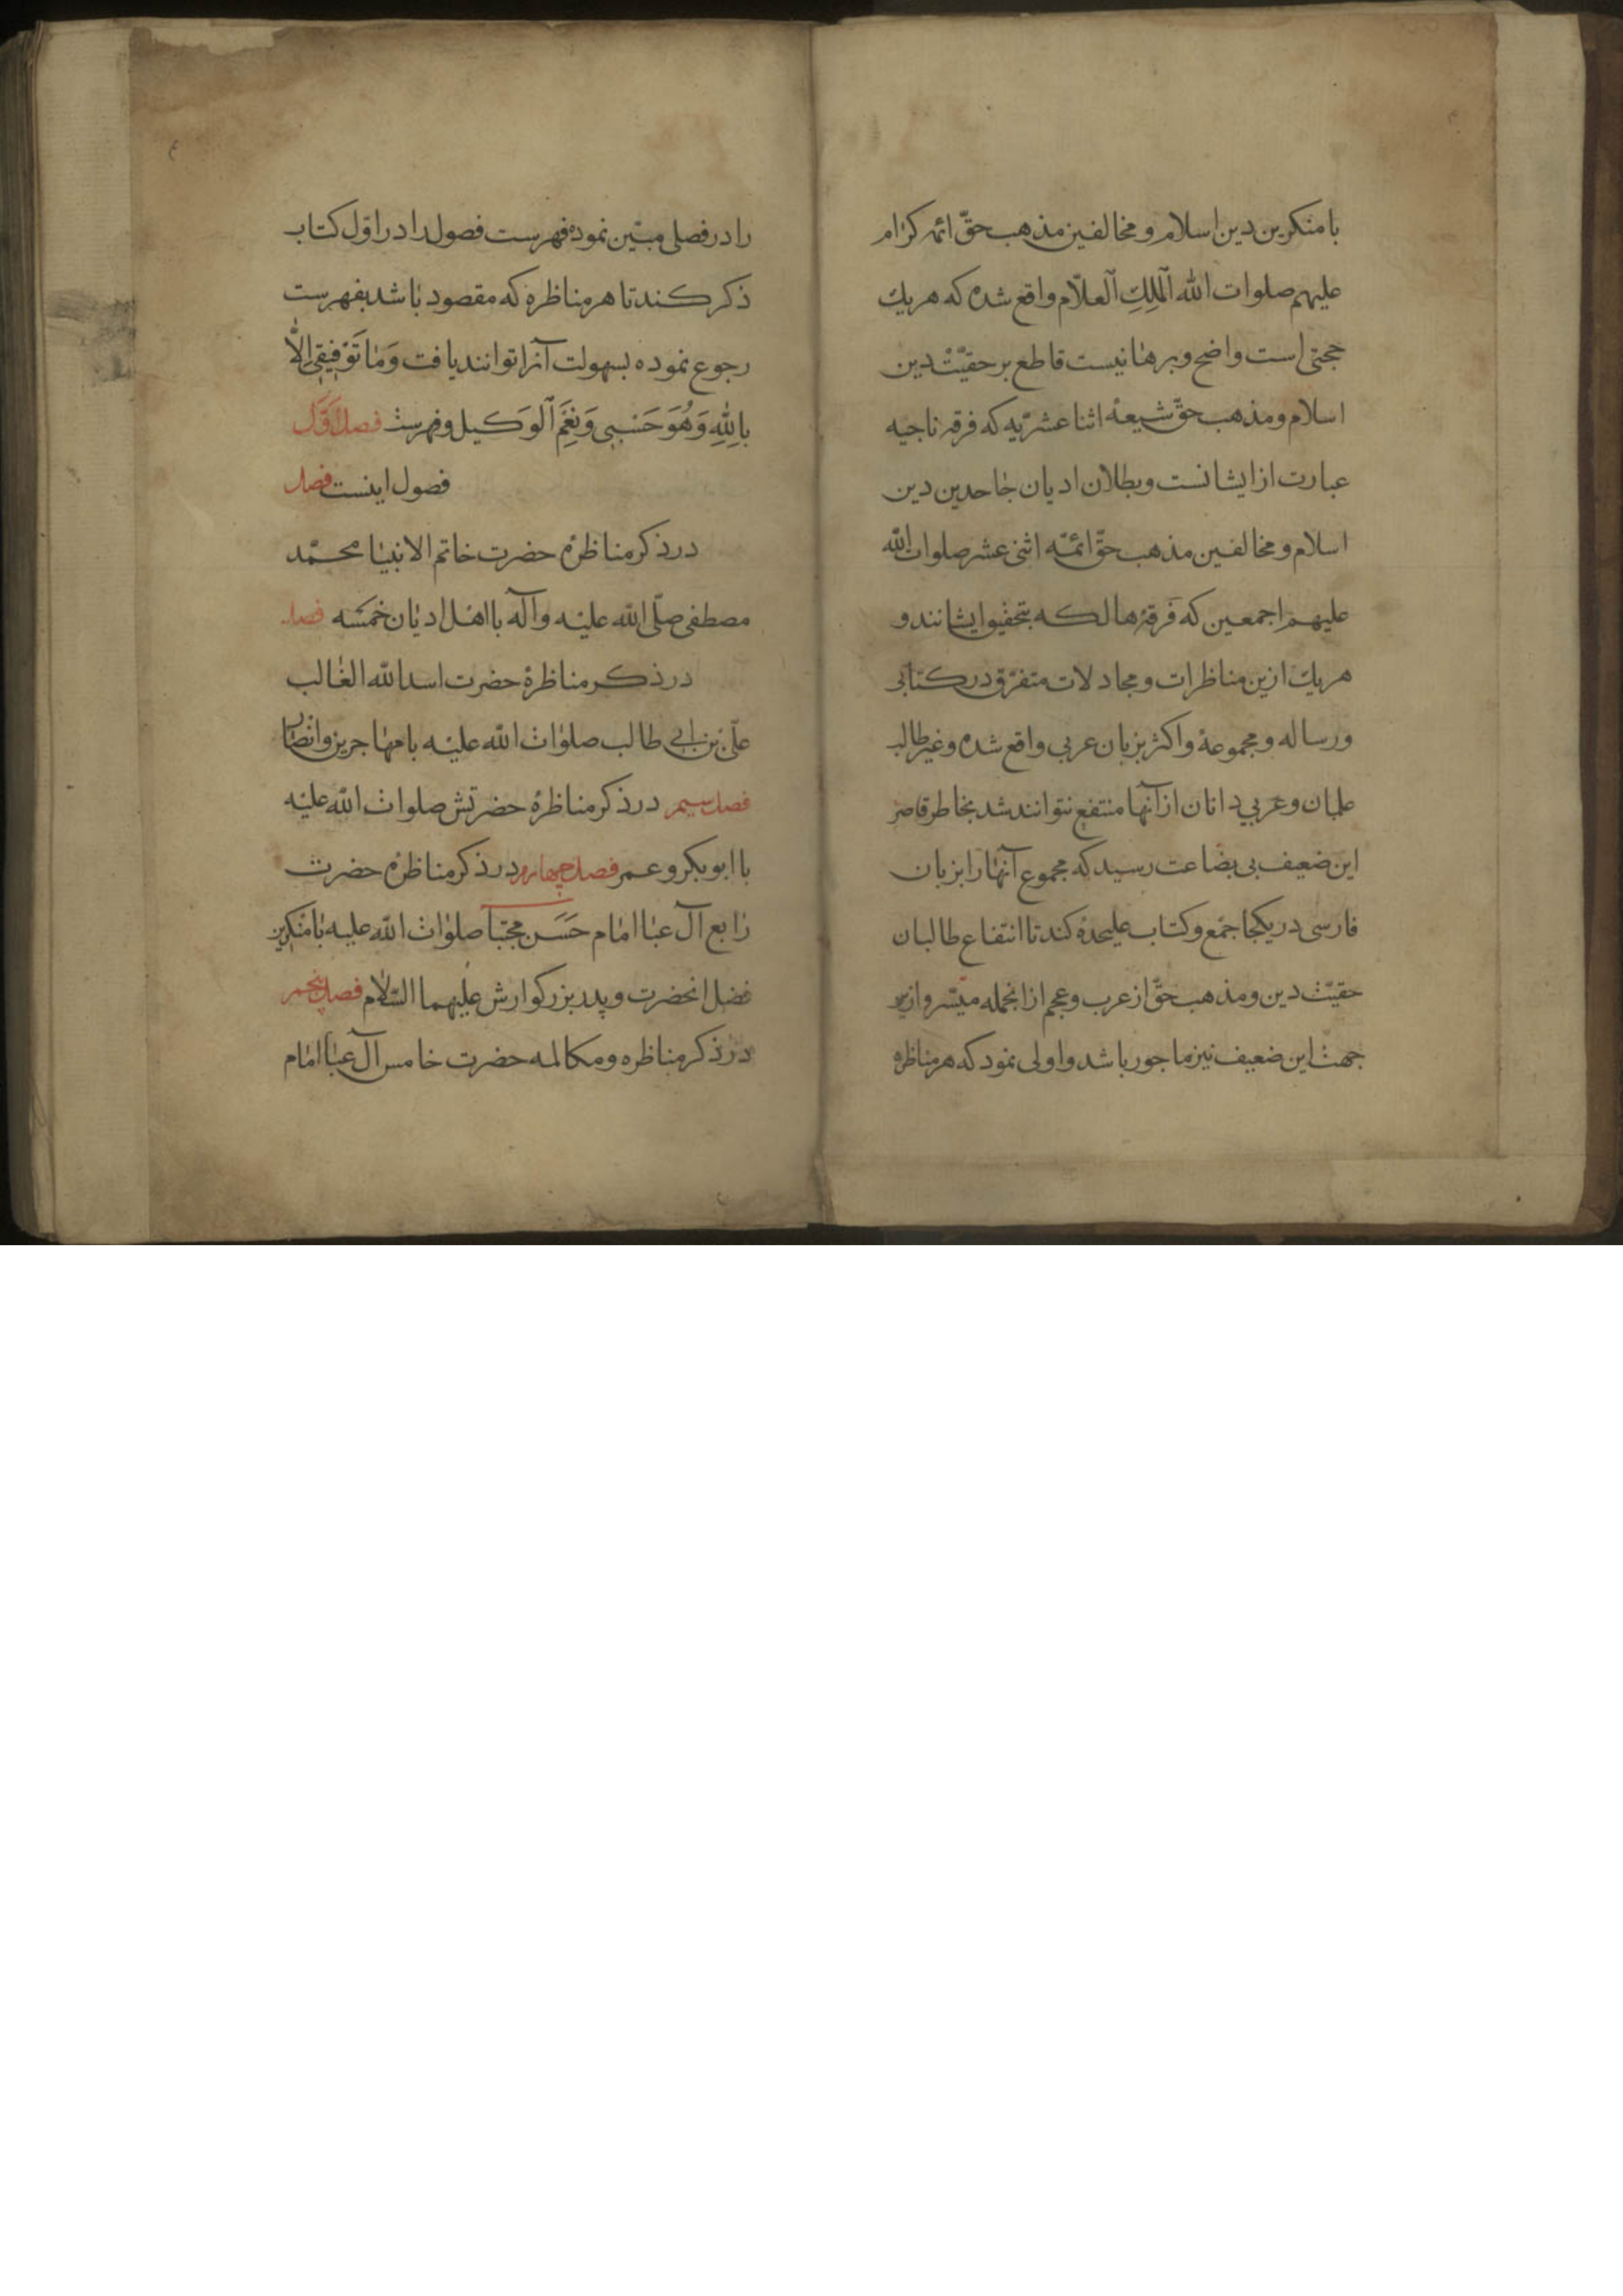 بامنکرین دین اسلام و مخالفین مذهب حقّ ائمه کرام
علیهم صلوات الله اَلملِكِ اَلعلّام واقع شده که هریك
حجتی است واضح و برهانیست قاطع بر حقیّت دین
اسلام و مذهب حقّ شیعهٔ اثنا عشریّه که فرقه ناجیه
عبارت از ایشانست و بطلان ادیان جاحدین دین
اسلام و مخالفین مذهب حقّ ائمّه اثنی عشر صلوات الله
علیهم اجمعین که فرقهٔ هالکه بتحقیق ایشانند و
هریك ازین مناظرات و مجادلات متفرّق در کتابی
و رساله و مجموعهٔ و اکثر بزبان عربی واقع شده و غیر طالب
علمان و عربی دانان از آنها منتفع نتوانند شد بخاطر قاصر
این ضعیف بی بضاعت رسید که مجموع آنها را بزبان
فارسی در یکجا جمع و کتاب علیحدهٔ کند تا انتفاع طالبان
حقیّت دین و مذهب حقّ از عرب و عجم از انجمله میّسر و ازین
جهت این ضعیف نیز ماجور باشد و اولی نمود که هر مناظره
را در فصلی مبیّن نموده فهرست فصول را در اوّل کتاب
ذکر کند تا هر مناظره که مقصود باشد بفهرست
رجوع نموده بسهولت آنرا توانند یافت وَمَا تَوْفِیقِی اِلَّا
بِاللهِ وَهُوَ حَسْبِی وَنِعْمَ اَلوَکیل و فهرست فصل اَوَّل
فصول اینست فصل
در ذکر مناظرهٔ حضرت خاتم الانبیا محمّد
مصطفی صلّی الله علیه وآله با اهل ادیان خمسَه فصل
در ذکر مناظرهٔ حضرت اسد الله الغالب
علیّ بن ابی طالب صلوات الله علیه با مهاجرین و انصار
فصل سیم در ذکر مناظرهٔ حضرتش صلوات الله علیه
با ابوبکر و عمر فصل چهارم در ذکر مناظرهٔ حضرت
رابع آل عبا امام حَسَن مجتبا صلوات الله علیه با منکرین
فضل انحضرت و پدر بزرکوارش علیهما السّلام فصل پنجم
در ذکر مناظره و مکالمه حضرت خامس آل عبا امام